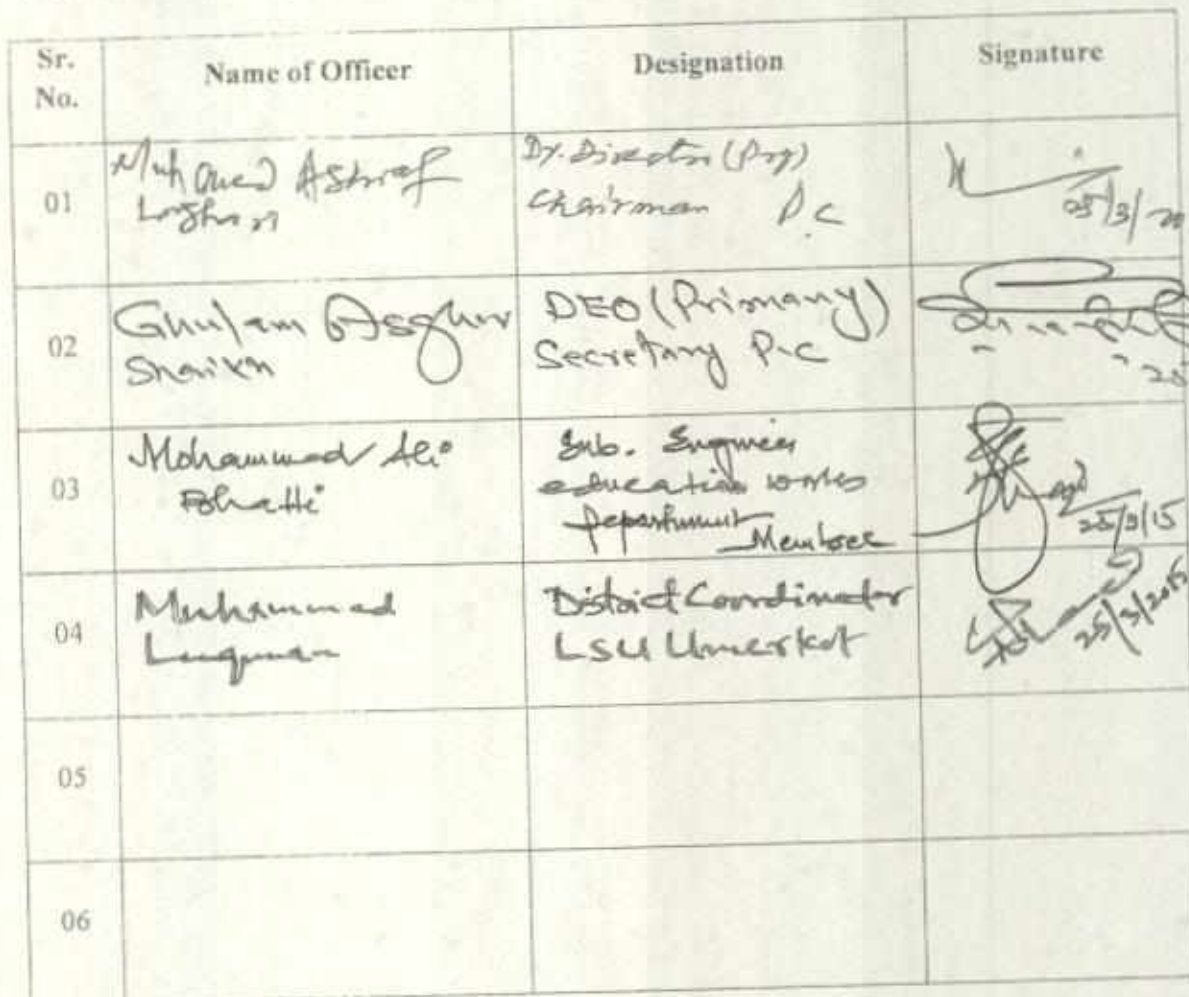 Sr. No.
Name of Officer
Designation
Signature
01
Muhammad Ashraf
Dy. Director (Prog)
Chairman P.C
25/3/20
02
Ghulam Asghar
Shaikh
DEO (Primary)
Secretary P.C
25
03
Mohammad Ali
Bhatti
Sub. Engineer
education works
Department
Member
25/3/15
04
Muhammad
Luqman
District Coordinator
LSU Umerkot
25/3/2015
05
06